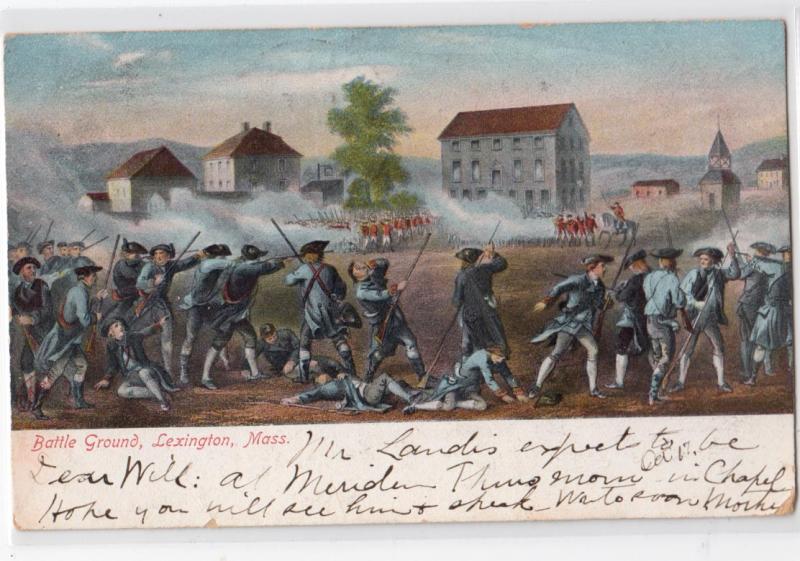 Battle Ground, Lexington, Mass.
Mr Landis expect to be
Dear Will: at Meriden Thurs morn in Chapel
Oct 17.
Hope you will see him & speak Write soon Mother